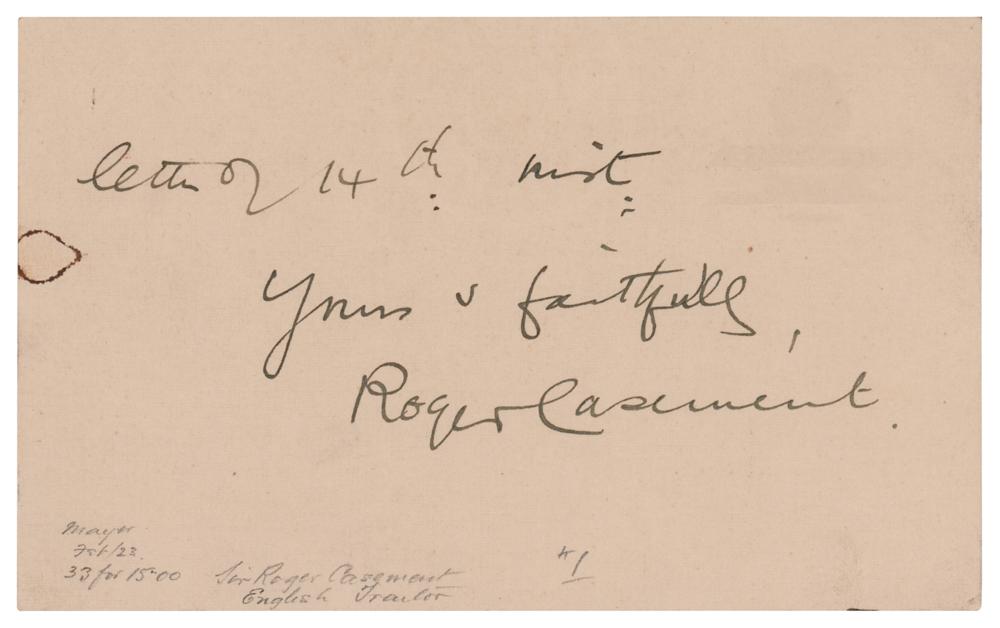 letter of 14th inst.
Yours v faithfully,
Roger Casement.
Mayer
Feb/23.
33 for 15.00
Sir Roger Casement
English Traitor
#1